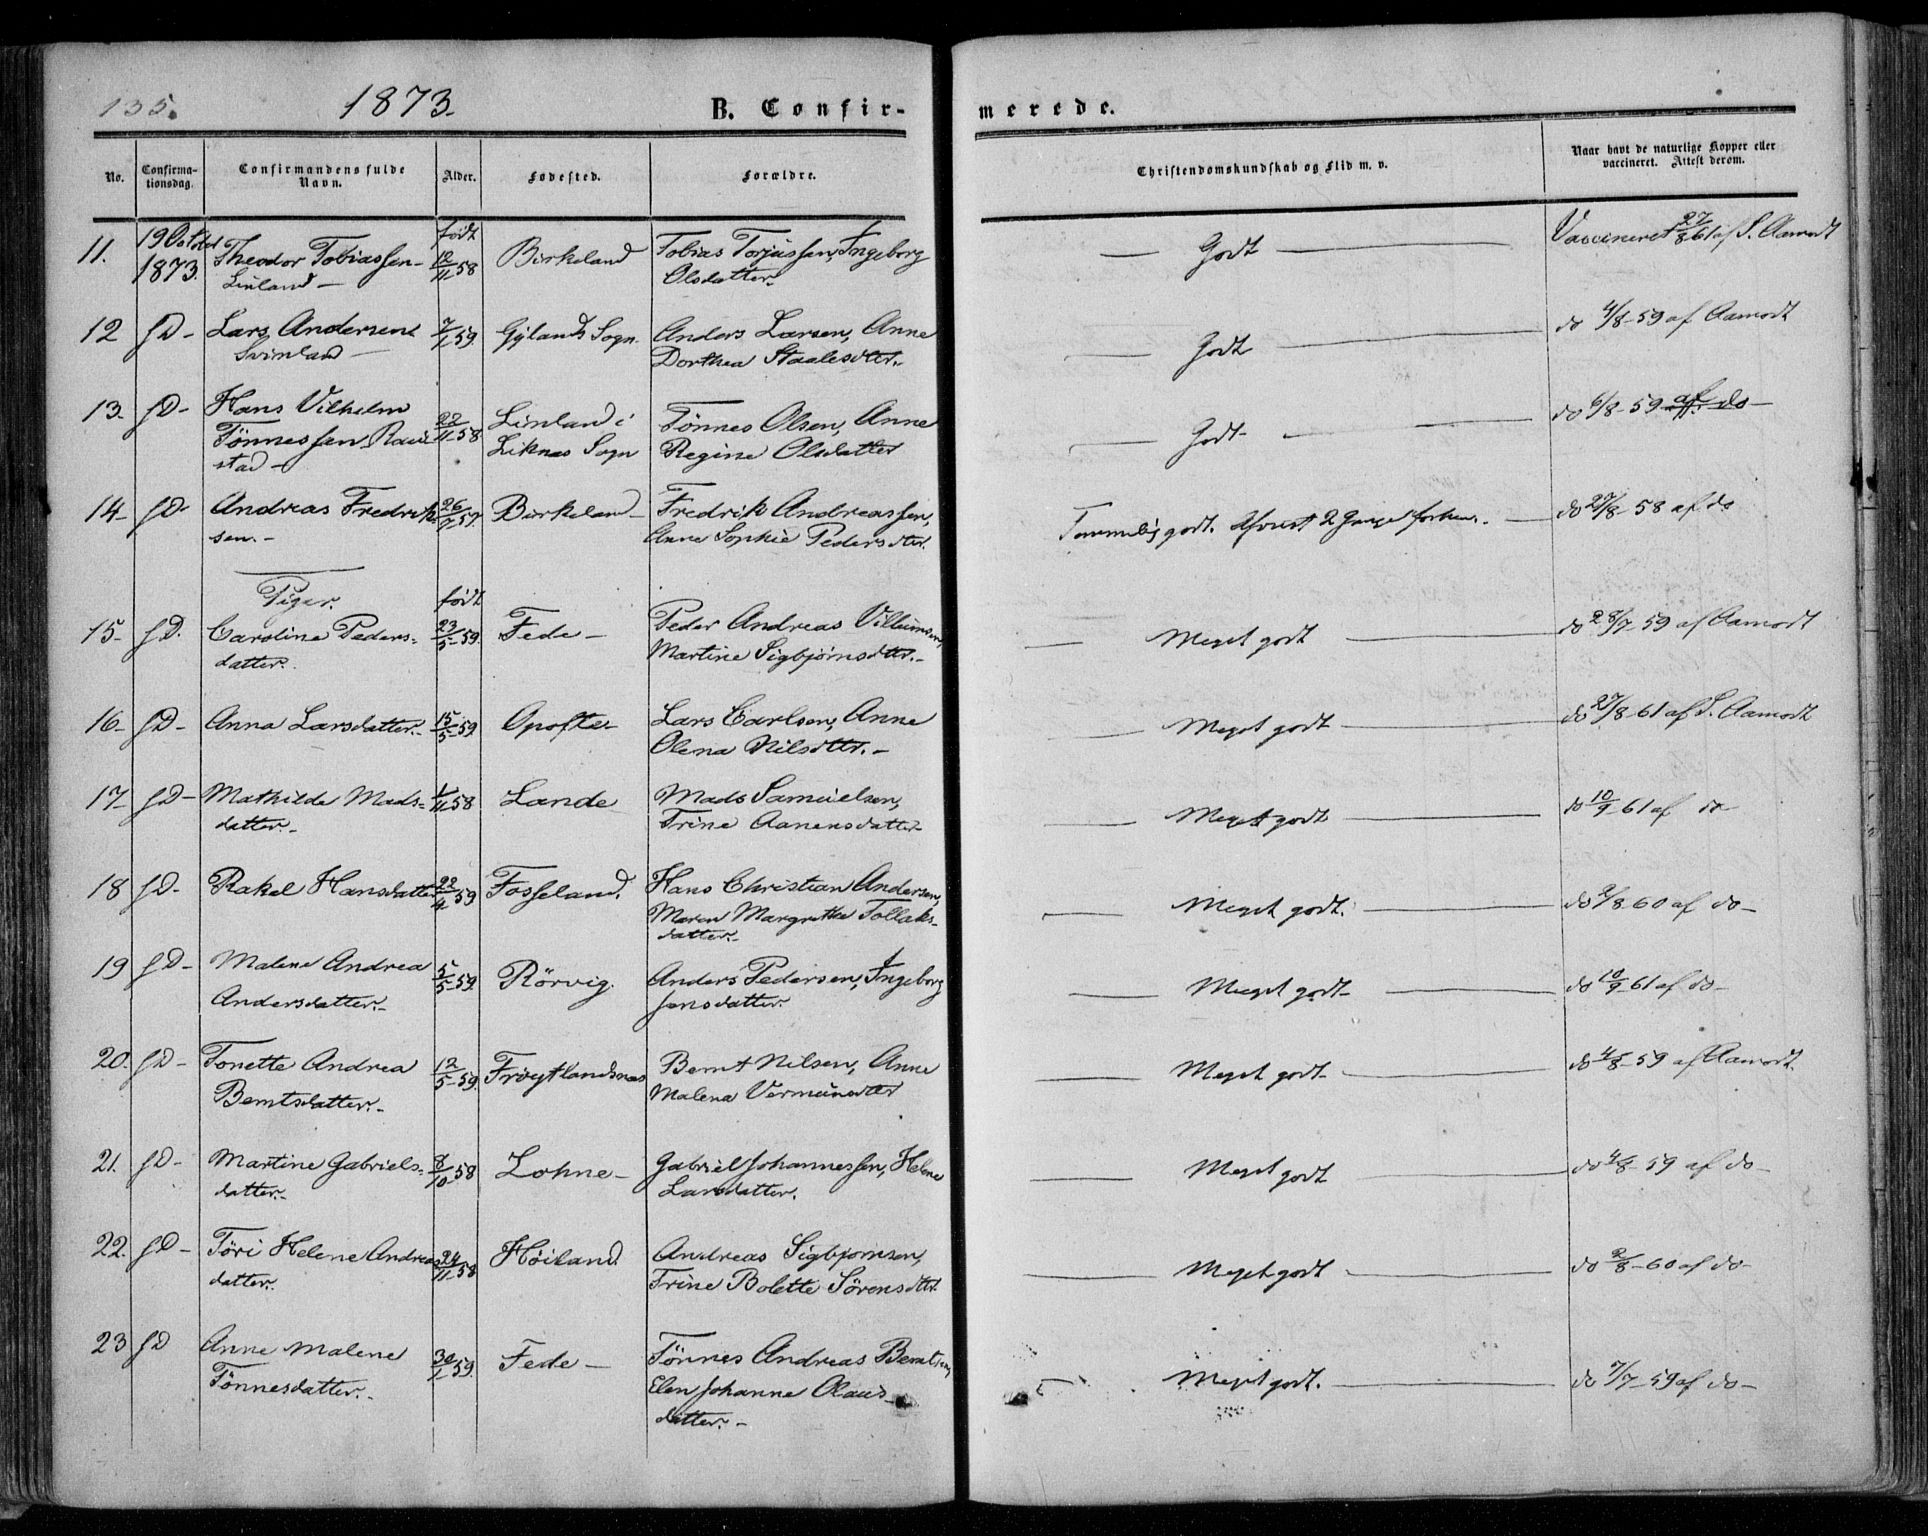 135.
1873.
B. Confir-
merede.
No.
Confirma-
tionsdag.
Confirmandens fulde
Navn.
Alder.
Fødested.
Forældre.
Christendomskundskab og Flid m. v.
Naar havt de naturlige Kopper eller
vaccineret. Attest derom.
11. 19 Octbr 1873. Theodor Tobiassen født 12/11 58 Birkeland Tobias Torjussen, Ingeborg — Godt — Vaccineret 27/8 61 af S. Aamodt
Linland — Olsdatter.
12 gD- Lars Andersen 7/1 59. Gylands Sogn. Anders Larsen, Anne — Godt — do 4/8-59 af Aamodt
Svinland — Dorthea Staalesdtr.
13. gD- Hans Vilhelm 22/11 58 Linland i Tönnes Olsen, Anne — Godt — do 6/8-59 af do
Tönnessen Rauli Liknes Sogn Regine Olsdatter
stad —
14- gD- Andreas Fredrik 26/7 57. Birkeland — Fredrik Andreassen, Temmelig godt. Afvist 2 Gange forhen. — do 27/8-58 af do
sen.- Anne Sophie Pedersdtr.
Piger. født
15- gD. Caroline Peders- 23/5-59. Fede — Peder Andreas Villumsen, — Meget godt — do 28/7-59 af Aamodt
datter. Martine Sigbjørnsdtr.-
16- gD- Anna Larsdatter.- 15/5-59. Opofte- Lars Carlsen, Anne — Meget godt — do 27/8-61 af S. Aamodt
Olena Nilsdtr.-
17- gD- Mathilde Mads- 1/11 58 Lande Mads Samuelsen, — Meget godt — do 10/9-61 af do
datter.- Trine Aanensdatter
18 gD- Rakel Hansdatter 22/4 59 Fosseland. Hans Christian Andersen, — Meget godt. — do 2/8 60 af do-
Maren Margrethe Tollaks-
datter.-
19 gD- Malene Andrea 5/5-59. Rörvig. Anders Pedersen, Ingeborg — Meget godt — do 10/9-61 af do-
Andersdatter.- Jensdatter.
20. gD- Tonette Andrea 12/5-59. Frøytlandsnes Bernt Nilsen, Anne — Meget godt — do 4/8-59 af Aamodt.
Berntsdatter.- Malena Vermundsdtr
21. gD- Martine Gabriels- 8/10 58 Lohne — Gabriel Johannessen, Helene — Meget godt — do 4/8-59 af do-
datter.- Larsdatter.
22. gD- Töri Helene Andreas 24/11 58 Höiland Andreas Sigbjørnsen, — Meget godt — do 2/8-60 af do-
datter. Trine Bolette Sörensdtr.
23 gD Anne Malene 30/1 59. Fede — Tönnes Andreas Berntsen, Meget godt. — do 7/7-59 af do-
Tönnesdatter.- Elen Johanne Olaus-
datter.-